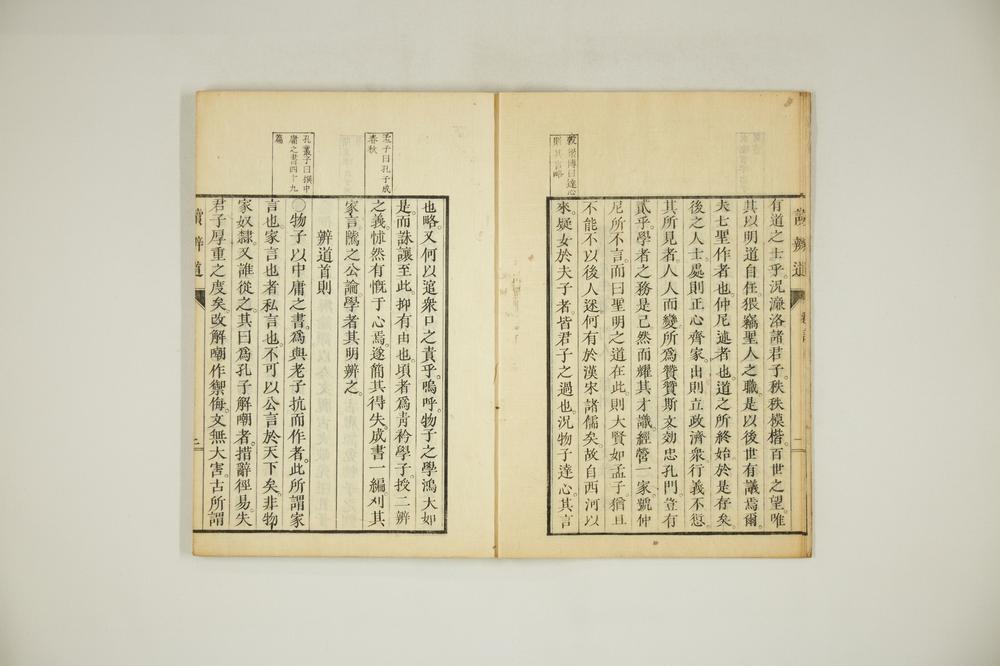 有道之士乎。況濂洛諸君子。秩秩模楷。百世之望。唯
其以明道自任。猥竊聖人之職。是以後世有議焉爾。
夫七聖作者也。仲尼述者也。道之所終始。於是存矣。
後之人士。處則正心齊家。出則立政濟衆。行義不愆。
其所見者。人人而變。所爲贊贊斯文。効忠孔門。豈有
貳乎。學者之務。是已。然而耀其才識。經營一家。號仲
尼所不言。而曰聖明之道在此。則大賢如孟子。猶且
不能不以後人迷。何有於漢宋諸儒矣。故自西河以
來。疑女於夫子者。皆君子之過也。況物子達心。其言
穀梁傳曰達心
則其言略
也略。又何以逭衆口之責乎。嗚呼。物子之學鴻大如
是。而誅讓至此。抑有由也。頃者爲靑衿學子。授二辨
之義。怵然有慨于心焉。遂簡其得失。成書一編。刈其
家言。隲之公論。學者其明辨之。
辨道首則
〇物子以中庸之書。爲與老子抗而作者。此所謂家
言也。家言也者。私言也。不可以公言於天下矣。非物
家奴隷。又誰從之。其曰爲孔子解嘲者。措辭徑易。失
君子厚重之度矣。改解嘲作禦侮。文無大害。古所謂
孟子曰孔子成
春秋
孔叢子曰撰中
庸之書四十九
篇
讀辨道
二
辨道
一